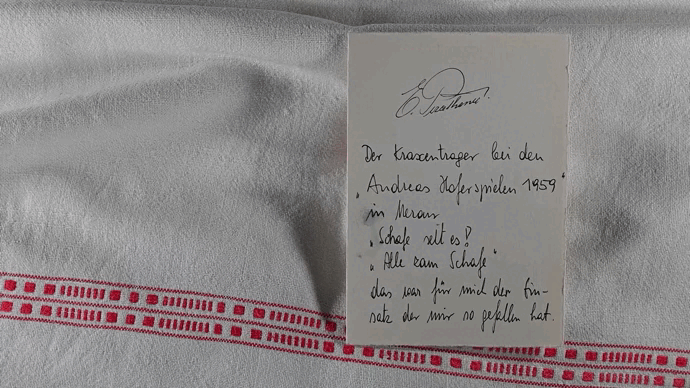 Der Kraxentrager bei den
„Andreas Hoferspielen 1959"
in Meran
„Schafe seit es!"
„Alle zam Schafe"
das war für mich der Ein-
satz der mir so gefallen hat.